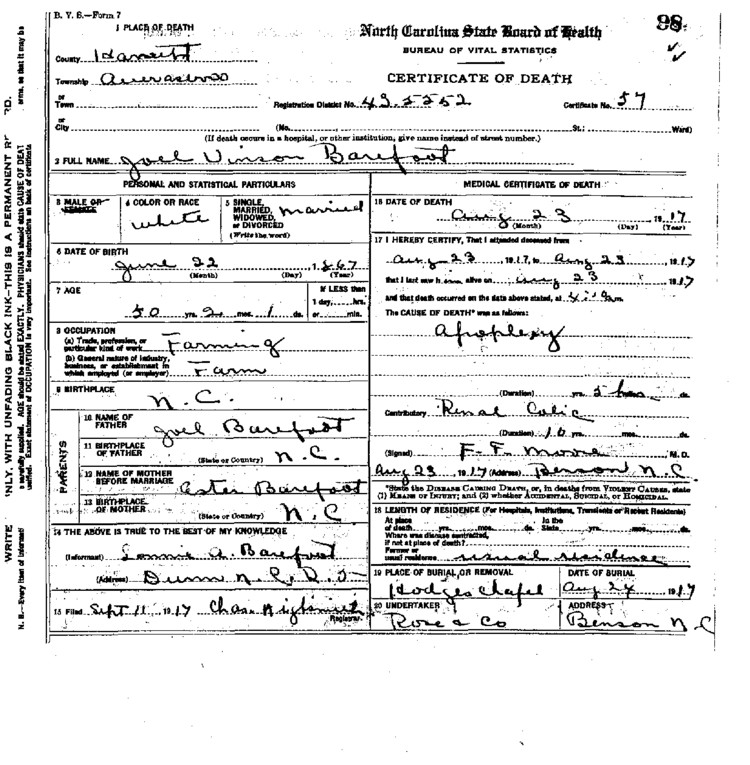 B. V. S.—Form 7
98
1 PLACE OF DEATH
North Carolina State Board of Health
County Harnett
BUREAU OF VITAL STATISTICS
Township Averasboro
CERTIFICATE OF DEATH
or
Town
Registration District No. 43-5552 Certificate No. 57
or
City (No. St.; Ward)
(If death occurs in a hospital, or other institution, give name instead of street number.)
2 FULL NAME Joel Vinson Barefoot
PERSONAL AND STATISTICAL PARTICULARS
3 MALE OR FEMALE
4 COLOR OR RACE white
5 SINGLE, MARRIED, WIDOWED, or DIVORCED married
(Write the word)
6 DATE OF BIRTH
June 22, 1867
(Month) (Day) (Year)
7 AGE
IF LESS than
1 day,......hrs.
50 yrs. 2 mos. 1 ds. or......min.
8 OCCUPATION
(a) Trade, profession, or particular kind of work Farming
(b) General nature of industry, business, or establishment in which employed (or employer) Farm
9 BIRTHPLACE
N. C.
PARENTS
10 NAME OF FATHER Joel Barefoot
11 BIRTHPLACE OF FATHER (State or Country) N. C.
12 NAME OF MOTHER BEFORE MARRIAGE Ester Barefoot
13 BIRTHPLACE OF MOTHER (State or Country) N. C
14 THE ABOVE IS TRUE TO THE BEST OF MY KNOWLEDGE
(Informant) A. Barefoot
(Address) Dunn N. C.
15 Filed Sept 11, 1917 Chas.
Registrar.
MEDICAL CERTIFICATE OF DEATH
16 DATE OF DEATH
Aug 23 1917
(Month) (Day) (Year)
17 I HEREBY CERTIFY, That I attended deceased from
Aug 23, 1917, to Aug 23 1917
that I last saw h alive on Aug 23 1917
and that death occurred on the date above stated, at m.
The CAUSE OF DEATH* was as follows:
Apoplexy
(Duration) yrs. 5 ds.
Contributory Renal Colic
(Duration) 10 yrs. mos. ds.
(Signed) F. F. Moore M. D.
Aug 23, 1917 (Address) Benson N. C
*State the DISEASE CAUSING DEATH, or, in deaths from VIOLENT CAUSES, state
(1) MEANS OF INJURY; and (2) whether ACCIDENTAL, SUICIDAL, or HOMICIDAL.
18 LENGTH OF RESIDENCE (For Hospitals, Institutions, Transients or Recent Residents)
At place of death yrs. mos. ds. In the State yrs. mos. ds.
Where was disease contracted, if not at place of death?
Former or usual residence usual residence
19 PLACE OF BURIAL OR REMOVAL
Hodges Chapel
DATE OF BURIAL
Aug 24 1917
20 UNDERTAKER
Rose & Co
ADDRESS
Benson N C